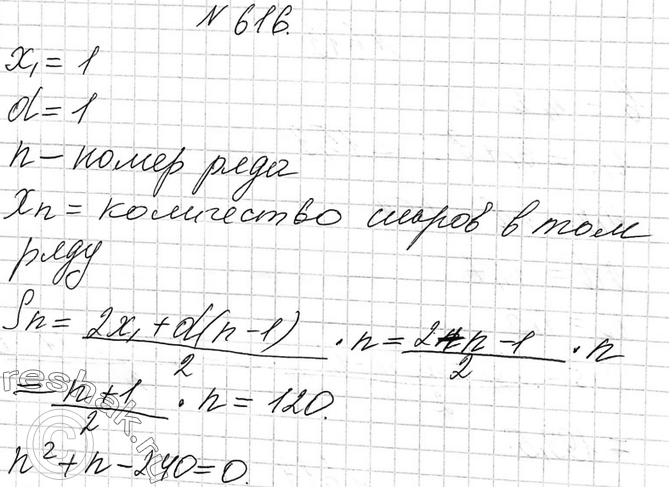 № 616.
x₁ = 1
d = 1
n – номер ряда
xₙ = количество шаров в том
ряду
Sₙ = (2x₁ + d(n-1))/2 · n = (2+n-1)/2 · n
= (n+1)/2 · n = 120.
n² + n - 240 = 0.
reshak.ru